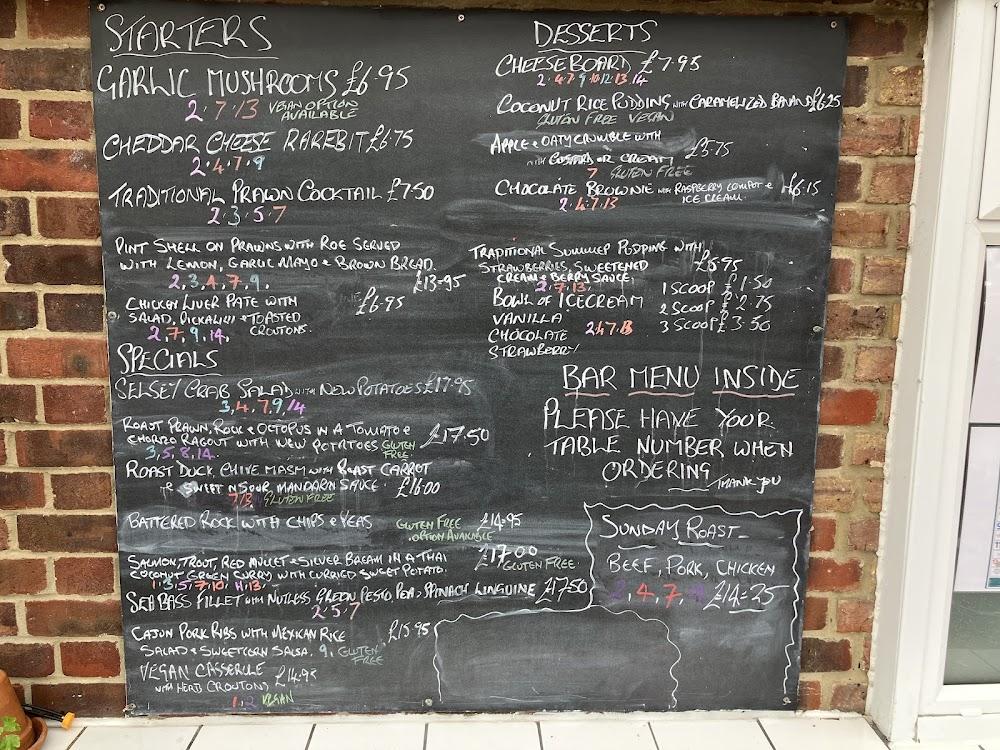 STARTERS
GARLIC MUSHROOMS £6.95
2·7·13 VEGAN OPTION
AVAILABLE
CHEDDAR CHEESE RAREBIT £6.75
2·4·7·9
TRADITIONAL PRAWN COCKTAIL £7.50
2·3·5·7
PINT SHELL ON PRAWNS WITH ROE SERVED
WITH LEMON, GARLIC MAYO & BROWN BREAD.
2,3,4,7,9. £13.95
CHICKEN LIVER PATE WITH £6.95
SALAD, PICKALILLI & TOASTED
CROUTONS.
2,7,9,14,
SPECIALS
SELSEY CRAB SALAD WITH NEW POTATOES £17.95
3,4,7,9,14
ROAST PRAWN, ROCK & OCTOPUS IN A TOMATO &
CHORIZO RAGOUT WITH NEW POTATOES GLUTEN FREE £17.50
3,5,8,14
ROAST DUCK, CHIVE MASH WITH ROAST CARROT
& SWEET N SOUR MANDARIN SAUCE. £16.00
7 13 GLUTEN FREE
BATTERED ROCK WITH CHIPS & PEAS GLUTEN FREE £14.95
OPTION AVAILABLE
SALMON, TROUT, RED MULLET & SILVER BREAM IN A THAI £17.00
COCONUT GREEN CURRY WITH CURRIED SWEET POTATO. GLUTEN FREE.
1,3,5,7,10, 11, 13.
SEA BASS FILLET WITH NUTLESS GREEN PESTO PEA & SPINACH LINGUINE £17.50
2·5·7
CAJUN PORK RIBS WITH MEXICAN RICE £15.95
SALAD & SWEETCORN SALSA. 9, GLUTEN
FREE
VEGAN CASSEROLE £14.95
WITH HERB CROUTONS
1,2 VEGAN
DESSERTS
CHEESEBOARD £7.95
2·4·7·9·10·12·13·14
COCONUT RICE PUDDING WITH CARAMELIZED BANANA £6.25
GLUTEN FREE VEGAN
APPLE & OATY CRUMBLE WITH
WITH CUSTARD OR CREAM £5.75
7 GLUTEN FREE
CHOCOLATE BROWNIE WITH RASPBERRY COMPOT & £6.15
2·4·7·13 ICE CREAM.
TRADITIONAL SUMMER PUDDING WITH
STRAWBERRIES, SWEETENED £6.95
CREAM & BERRY SAUCE.
2,7,13,
BOWL OF ICECREAM 1 SCOOP £1.50
VANILLA 2 SCOOP £2.75
CHOCOLATE 2·4·7·13 3 SCOOP £3.50
STRAWBERRY
BAR MENU INSIDE
PLEASE HAVE YOUR
TABLE NUMBER WHEN
ORDERING THANK YOU
SUNDAY ROAST
BEEF, PORK, CHICKEN
2, 4, 7, 9 £14.25